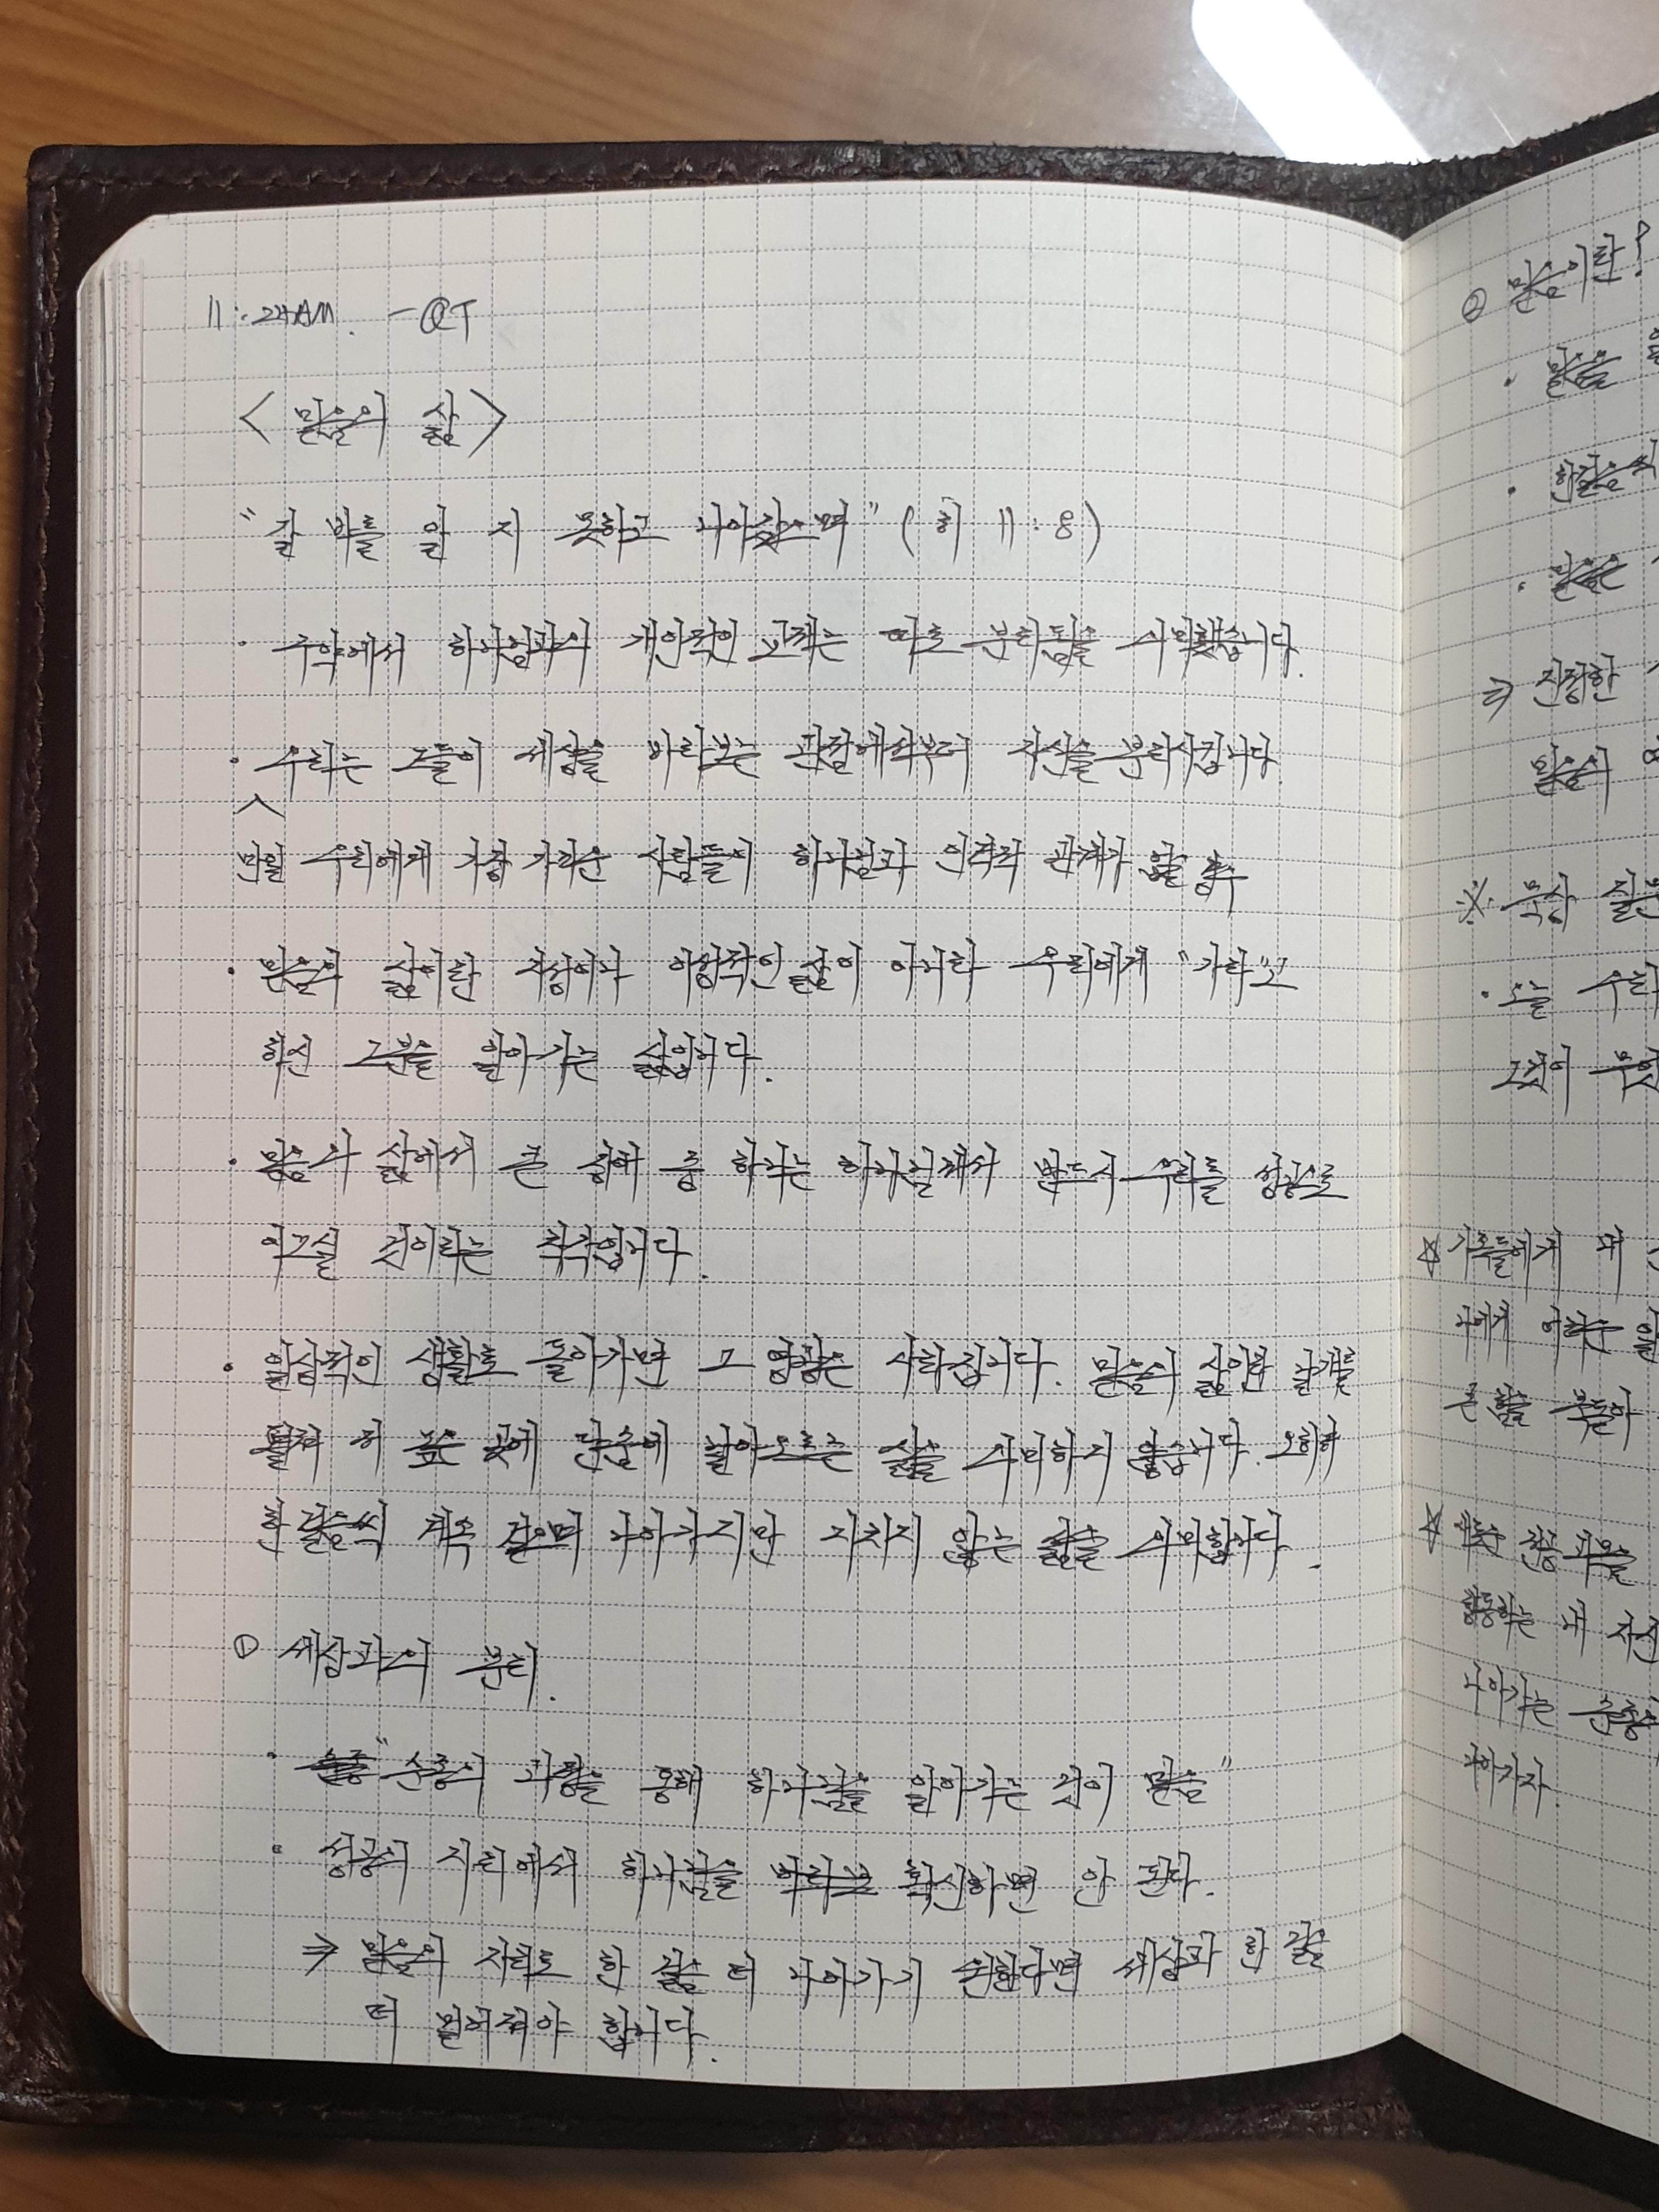 11:24AM. - QT
< 믿음의 삶 >
"갈 바를 알 지 못하고 나아갔으며" ( 히 11:8 )
· 구약에서 하나님과의 개인적인 교제는 따로 분리됨을 의미했습니다.
· 우리는 그들이 세상을 바라보는 관점에서부터 자신을 분리시킵니다
만일 우리에게 가장 가까운 사람들이 하나님과 인격적 관계가 없을 경우
· 믿음의 삶이란 지성이나 이성적인 삶이 아니라 우리에게 "가라"고
하신 그분을 알아 가는 삶입니다.
· 믿음의 삶에서 큰 장애 중 하나는 하나님께서 반드시 우리를 성공으로
이끄실 것이라는 착각입니다.
· 일상적인 생활로 돌아가면 그 영향은 사라집니다. 믿음의 삶이란 날개를
펼쳐 더 높은 곳에 단숨에 날아오르는 삶을 의미하지 않습니다. 오히려
한 걸음씩 계속 걸으며 나아가지만 지치지 않는 삶을 의미합니다.
① 세상과의 분리.
· "순종의 과정을 통해 하나님을 알아가는 것이 믿음"
· 성공의 자리에서 하나님을 확신하면 안 된다.
⇒ 믿음의 자리로 한 걸음 더 나아가기 원한다면 세상과 한 걸음
더 멀어져야 합니다.
② 믿음이란?
· 믿음을
· 한걸음씩
· 믿음은
⇒ 진정한
믿음의
※ 묵상 질문
· 오늘 우리
그것이 무엇
☆ 가족들에게
나에게 어려운
큰 힘을 붙들어
☆
행동하는 내 자신
나아가는 순종
나아가자.